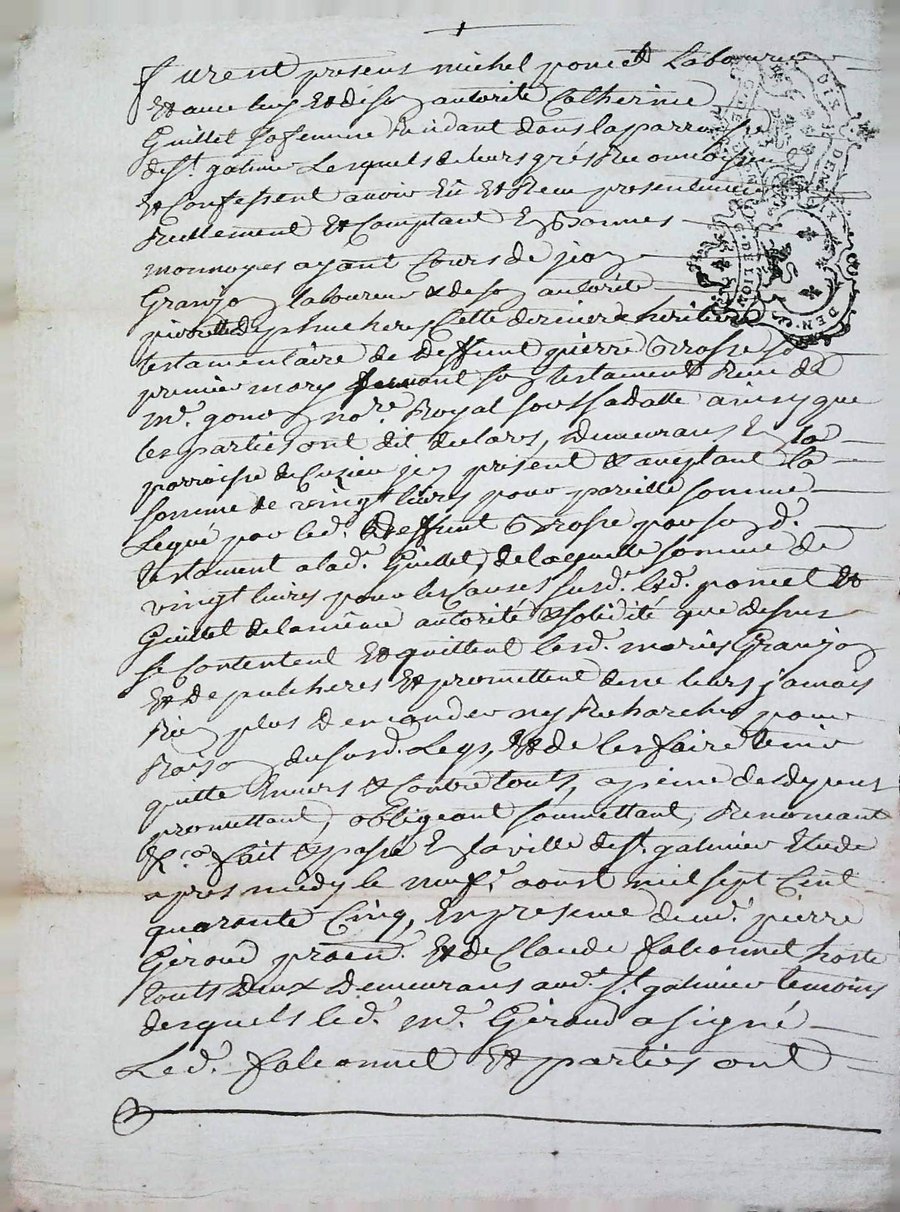 furent presens michel poncet Laboureur
Et avec luy Et de son autorité Catherine
Guillet sa femme Residant dans la parroisse
de St. galmier Lesquels de leurs grés Reconnoissent
Et Confessent avoir Eu Et Receu presentement
Reellement Et Comptant En bonnes
monnoyes ayant Cours de jean
Granjon laboureur & de son autorité
pierrette de pulcheres Cette derniere heritiere
testamentaire de deffunt pierre Grosse son
premier mary suivant son testament Receu
Me. gonon nore. Royal sous sa datte ainsy que
les parties ont dit declars, demeurans En la
parroisse de Cuzieu jcy present & aceptant la
somme de vingt livres pour pareille somme
Legué par led. deffunt Grosse par son d.
testament a lad. Guillet, de laquelle somme de
vingt livres pour les Causes susd. lesd. poncet Et
Guillet de la même autorité & solidité que dessus
se Contentent Et quittent lesd. mariés Granjon
Et de pulcheres Et promettent de ne leurs jamais
Rien plus demander ny Rechercher pour
Raison du susd. Legs, Et de les faire tenir
quitte Envers & Contre touts, a peine des depens
promettant, obligeant soumettant, Renonceant
&c.a fait & passé En la ville de St. galmier Etude
apres midy le neufe. aoust mil sept Cent
quarante Cinq, En presence de me. pierre
Géroud Et de Claude falconnet hoste
touts deux demeurans aud. St. galmier temoins
desquels led. me. Géroud a signé
Led. falconnet Et parties ont
G. DE LION
DEN.